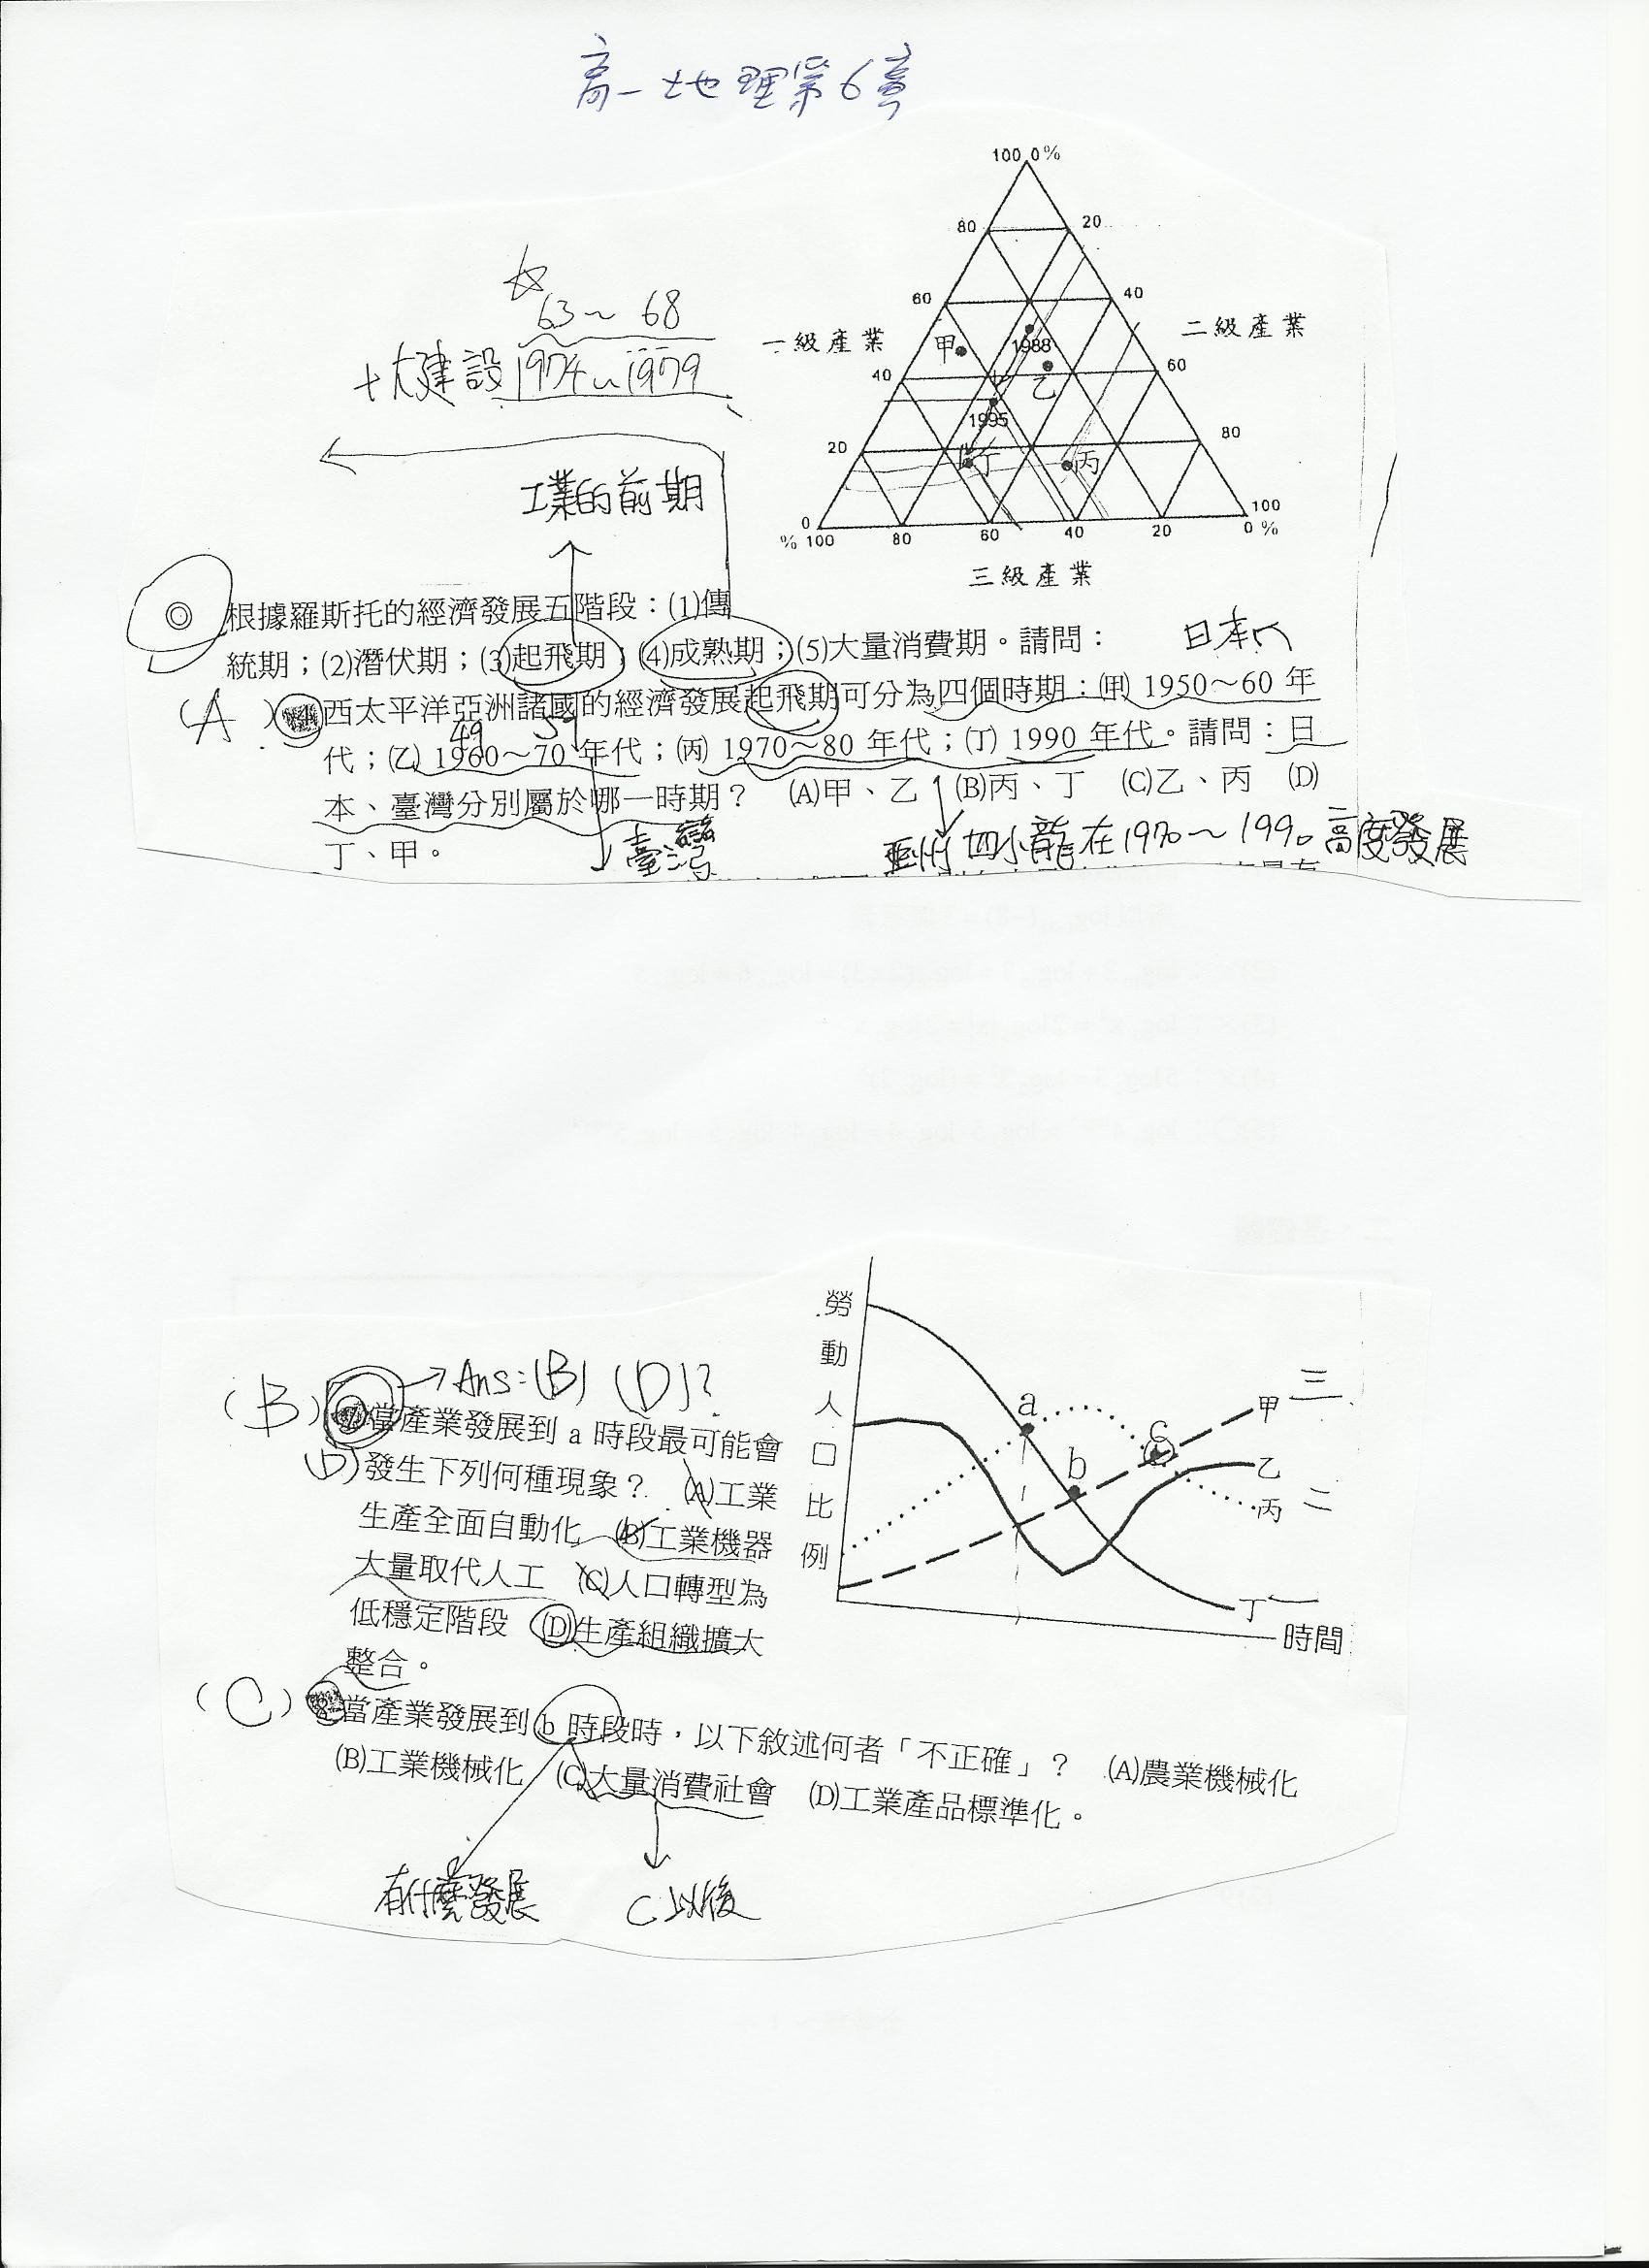 高一地理第6章
100 0%
80 20
60 40
一級產業 二級產業
甲 1988
40 60
乙
1995
20 80
丁 丙
0 100
% 100 80 60 40 20 0 %
三級產業
☆
63~68
十大建設1974~1979
工業的前期
◎根據羅斯托的經濟發展五階段：(1)傳
統期；(2)潛伏期；(3)起飛期；(4)成熟期；(5)大量消費期。請問：
日本
(A)西太平洋亞洲諸國的經濟發展起飛期可分為四個時期：(甲) 1950～60 年
49 59
代；(乙) 1960～70 年代；(丙) 1970～80 年代；(丁) 1990 年代。請問：日
本、臺灣分別屬於哪一時期？ (A)甲、乙 (B)丙、丁 (C)乙、丙 (D)
丁、甲。
臺灣
亞洲四小龍在1970~1990高度發展
勞動人口比例
a
b
c
甲 三
乙
丙 二
丁 一
時間
(B) → Ans=(B) (D)?
當產業發展到 a 時段最可能會
(D)發生下列何種現象？ (A)工業
生產全面自動化 (B)工業機器
大量取代人工 (C)人口轉型為
低穩定階段 (D)生產組織擴大
整合。
(C) 8.當產業發展到 b 時段時，以下敘述何者「不正確」？ (A)農業機械化
(B)工業機械化 (C)大量消費社會 (D)工業產品標準化。
有什麼發展
C以後